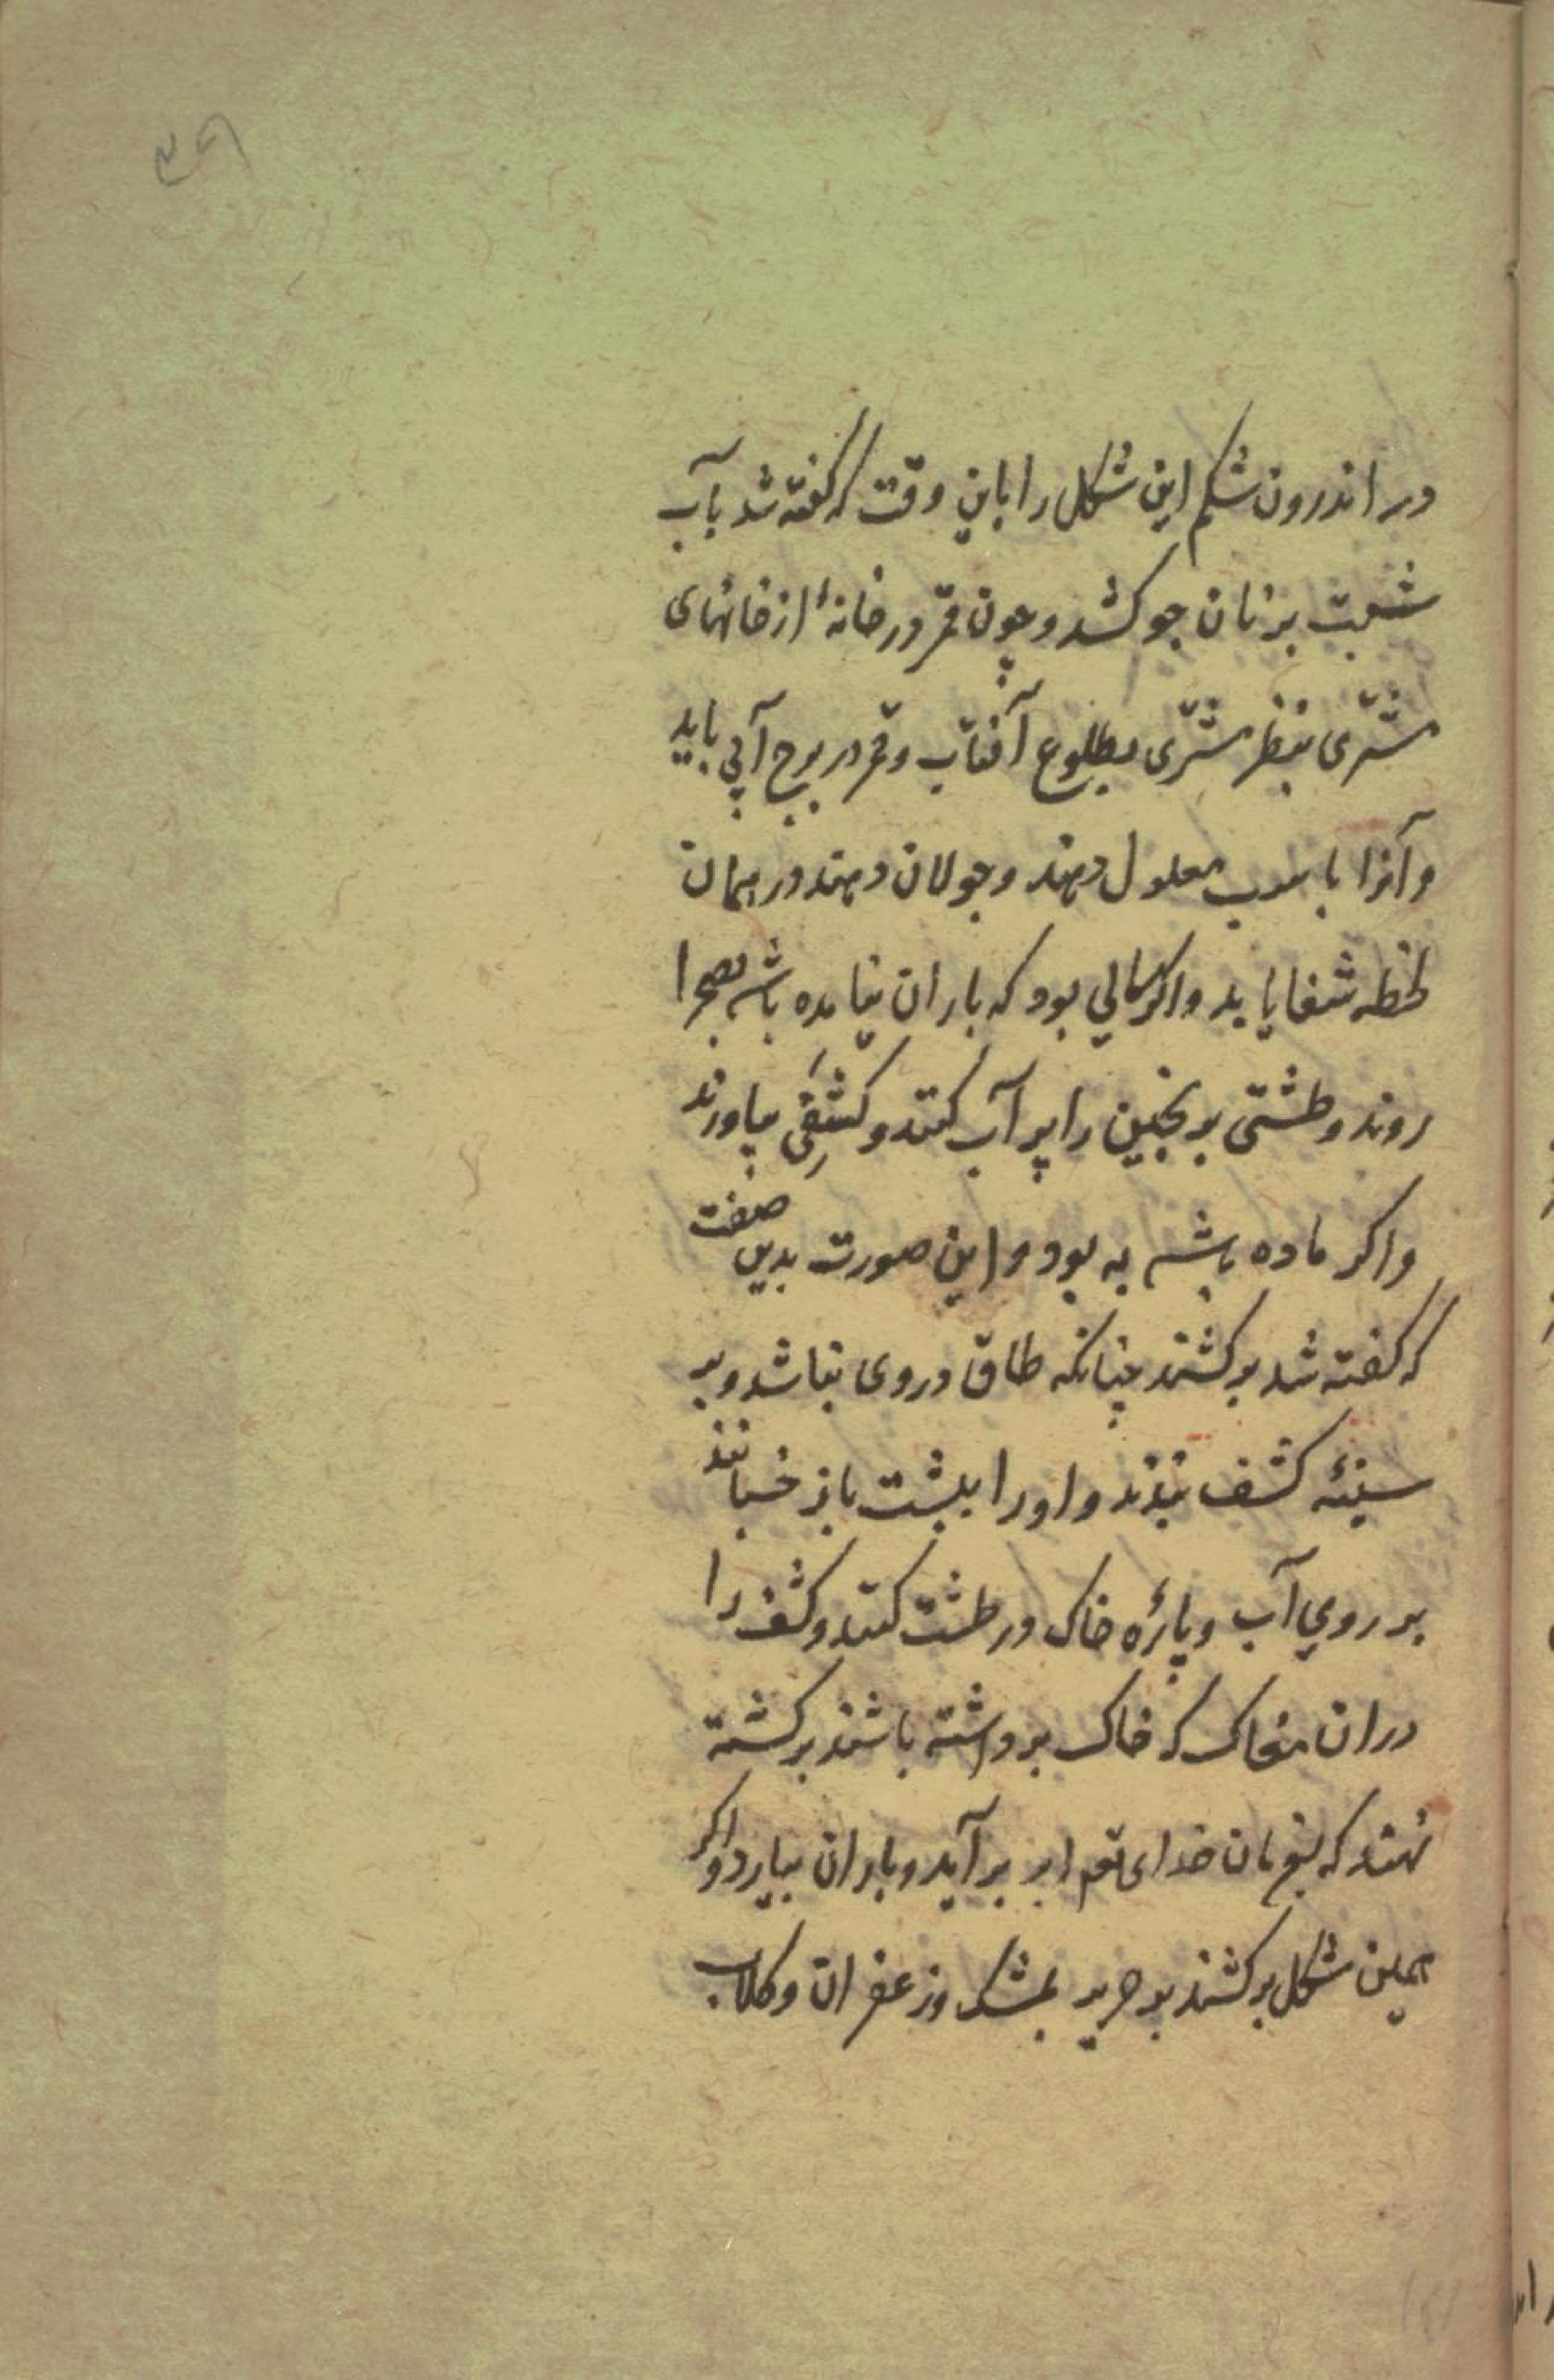 در اندرون شکم این شکل را باین وقت که کفته شد بآب
شبت بر نان جو کشد و چون قمر در خانهٔ از خانهای
مشتری بنظر مشتری بطلوع آفتاب و قمر در برج آبی باید
و آنرا باسب معلول دهند و جولان دهند در همان
لحظه شفا یابد و اکر سالی بود که باران نیامده باشد بصحرا
روند و طشتی برنجین را پر آب کنند و کشفی بیاورند
و اکر ماده باشد به بود و این صورت بدین صفت
که کفته شد برکشند چنانکه طاق در وی نباشد و بر
سینهٔ کشف بندند و او را به پشت باز خسبانند
بر روی آب و پارهٔ خاک در طشت کنند و کشف را
در ان مغاک که خاک برداشته باشند برکشته
نهند که بفرمان خدای تعم ابر برآید و باران ببارد و اکر
همین شکل برکشند بر حریر بمشک و زعفران و کلاب